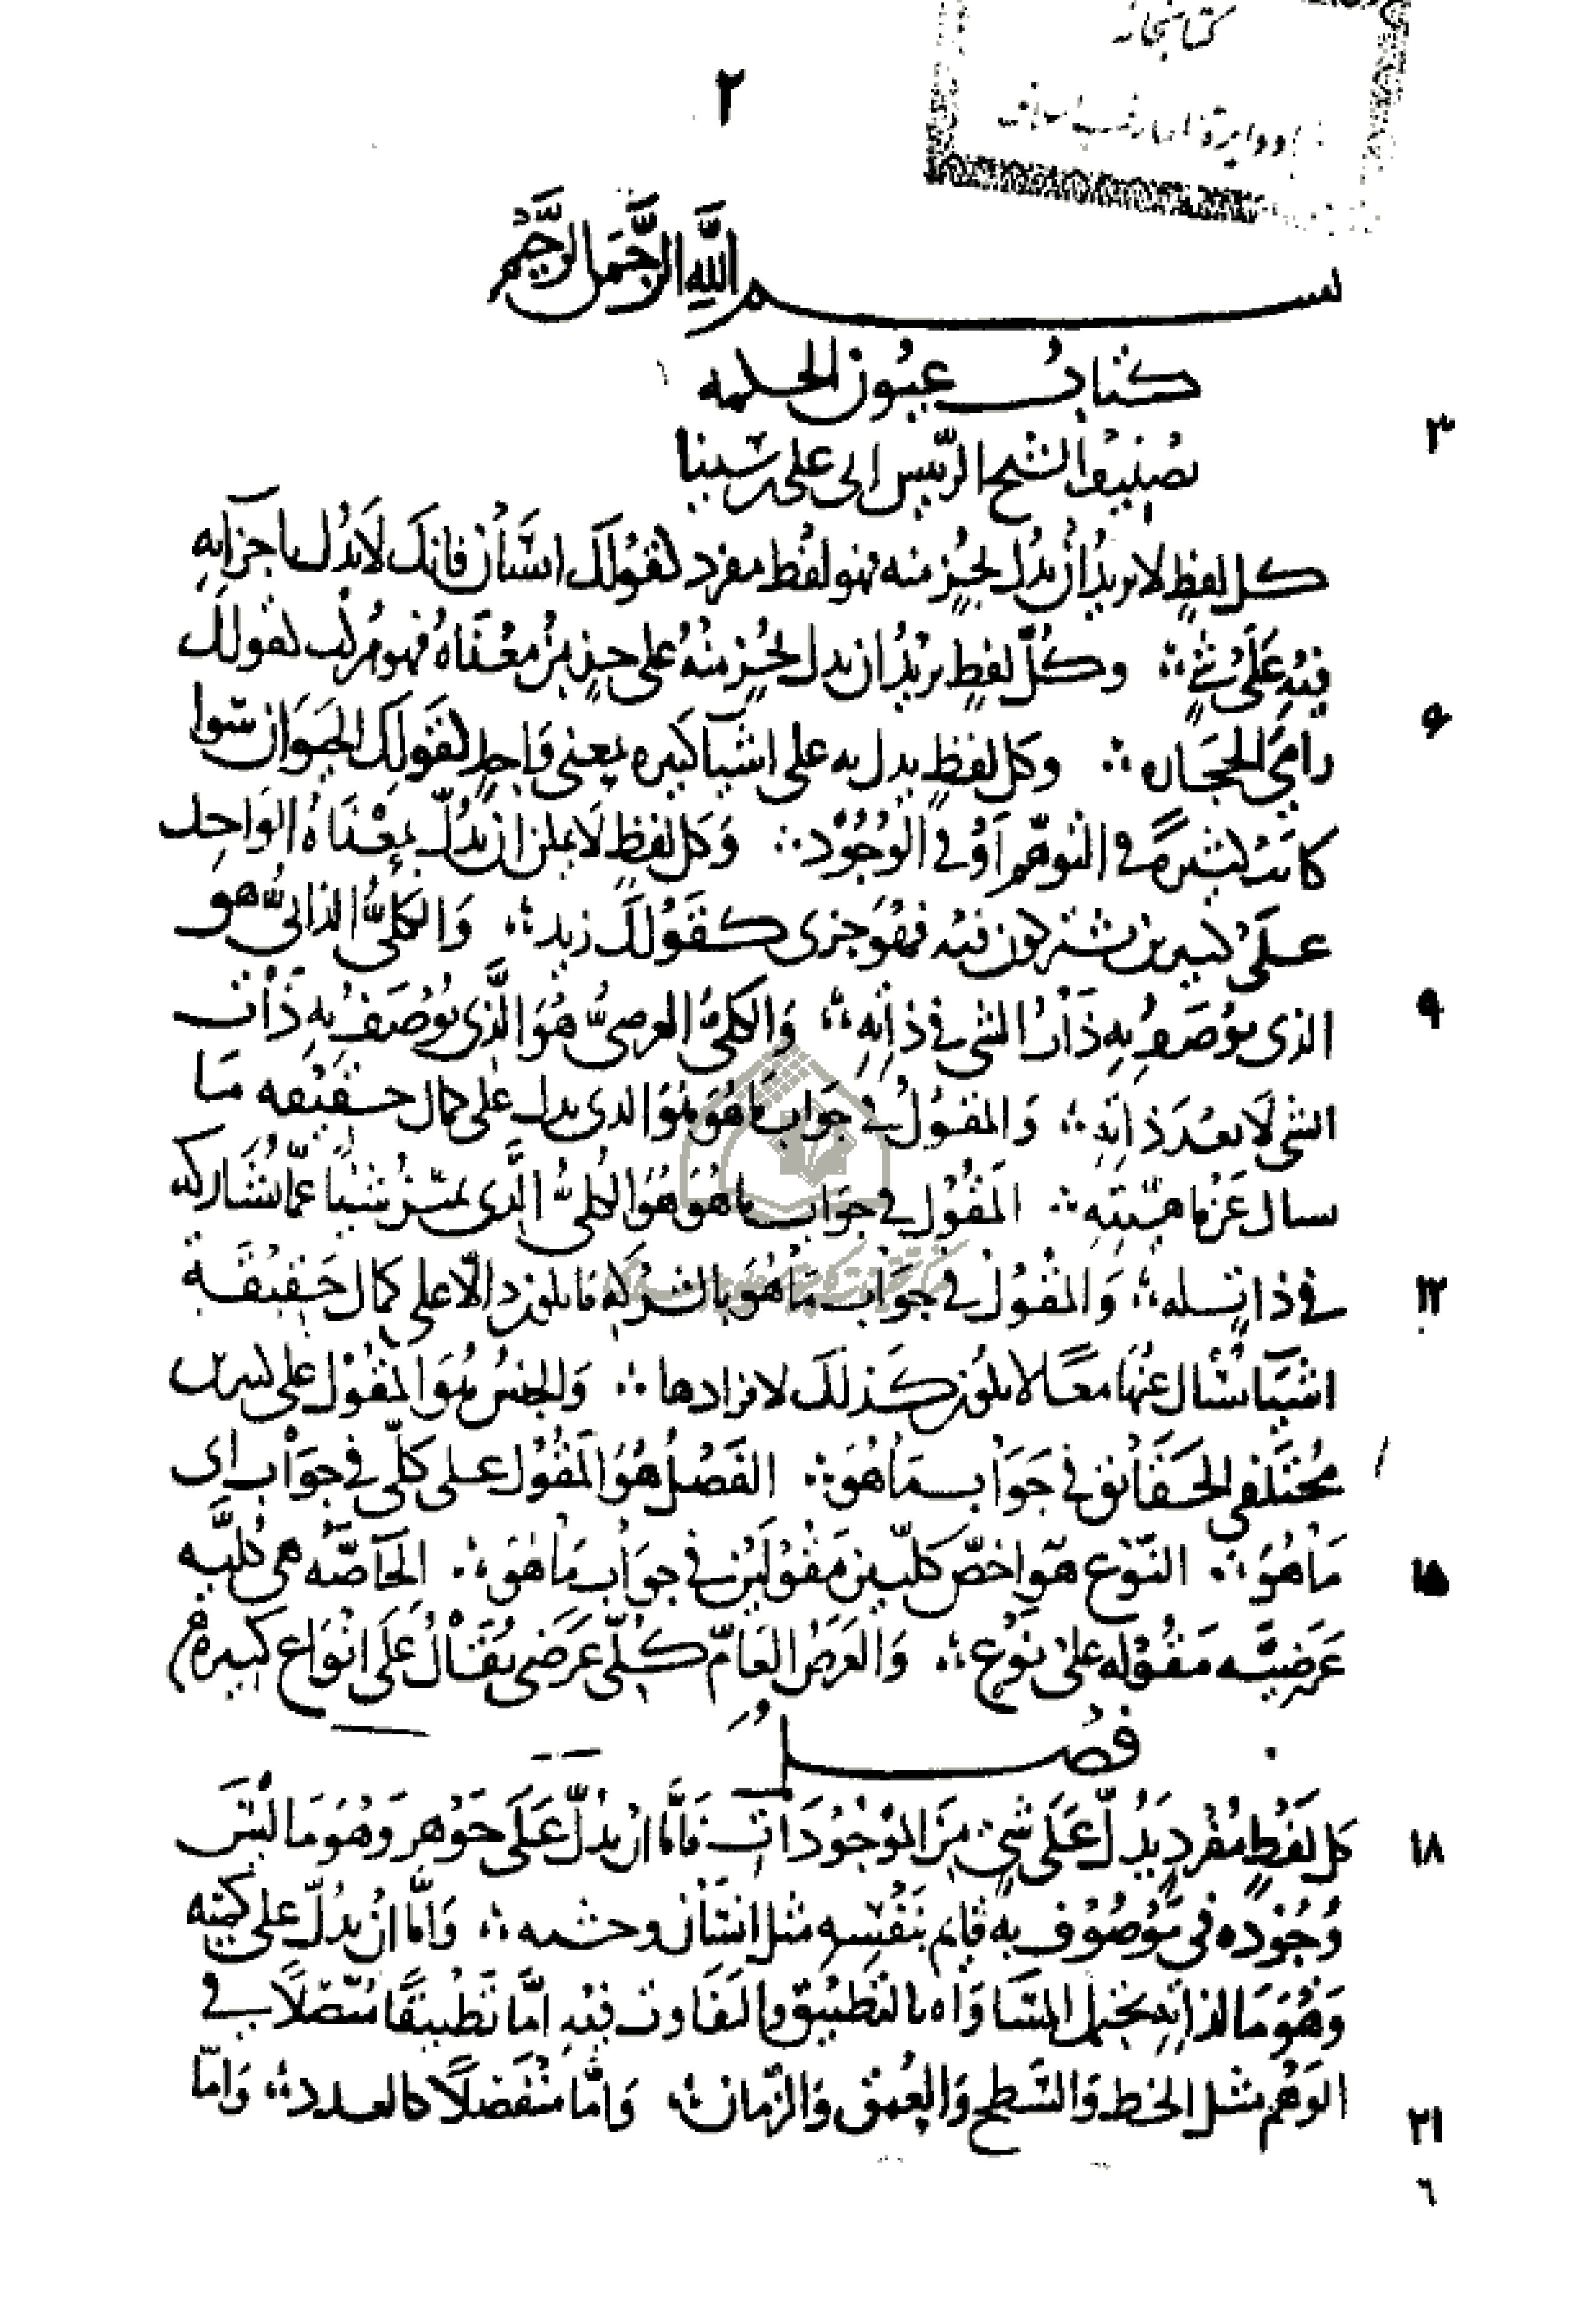 كتابخانه
٢
بسم الله الرحمن الرحيم
كتاب عيون الحكمه
٣
تصنيف الشيخ الرئيس ابى على بن سينا
كل لفظٍ لا تريد أن تدل بجزءٍ منه فهو لفظ مفرد كقولك انسان فانك لا تدل باجزائه
فيه على شيءٍ ∴ وكلّ لفظٍ تريد ان تدل بجزءٍ منه على جزءٍ من معناه فهو مركب كقولك
٦
رامي الحجاره ∴ وكل لفظٍ يدل به على اشيا كثيره بمعنى واحدٍ كقولك الحيوان سوا
كانت كثيرةً في التوهّم أو في الوجود ∴ وكل لفظٍ لا يمكن ان يدلّ بمعناه الواحد
على كثيرين يشتركون فيه فهو جزى كقولك زيد ∴ والكليّ الذاتيّ هو
٩
الذى يوصف به ذات الشى فى ذاته ∴ والكليّ العرضىّ هو الّذى يوصف به ذات
الشى لا بعد ذاته ∴ والمقول في جواب ما هو هو الذى يدل على كمال حقيقه ما
سال عن ماهيّته ∴ المقول في جواب ما هو هو الكليّ الّذى يميّز شيئا عمّا يشاركه
١٢
في ذاتٍ له ∴ والمقول في جواب ما هو بالشركه ما يكون دالّا على كمال حقيقة
اشيا يسأل عنها معًا لا يكون كذلك لافرادها ∴ والجنس هو المقول على كثيرين
مختلفي الحقائق في جواب ما هو ∴ الفصل هو المقول على كلّى في جواب اى
١٥
ما هو ∴ النّوع هو اخصّ كليّين مقولين في جواب ما هو ∴ الخاصّه هى كليّه
عرضيّه مقوله على نوع ∴ والعرض العامّ كلّى عرضى يقال على انواع كثيرة
فصل
١٨
كل لفظٍ مفردٍ يدلّ على شيءٍ من الموجودات فامّا ان يدلّ على جوهر وهو ما ليس
وجوده في موصوف به قايم بنفسه مثل انسان وخشبه ∴ وامّا ان يدلّ على كميّه
وهو ما لذاته يحتمل المساواه بالتطبيق والتفاوت فيه امّا تطبيقًا متّصلًا في
٢١
الوهم مثل الخط والسّطح والعمق والزّمان ∴ وامّا منفصلًا كالعدد ∴ وامّا
٦